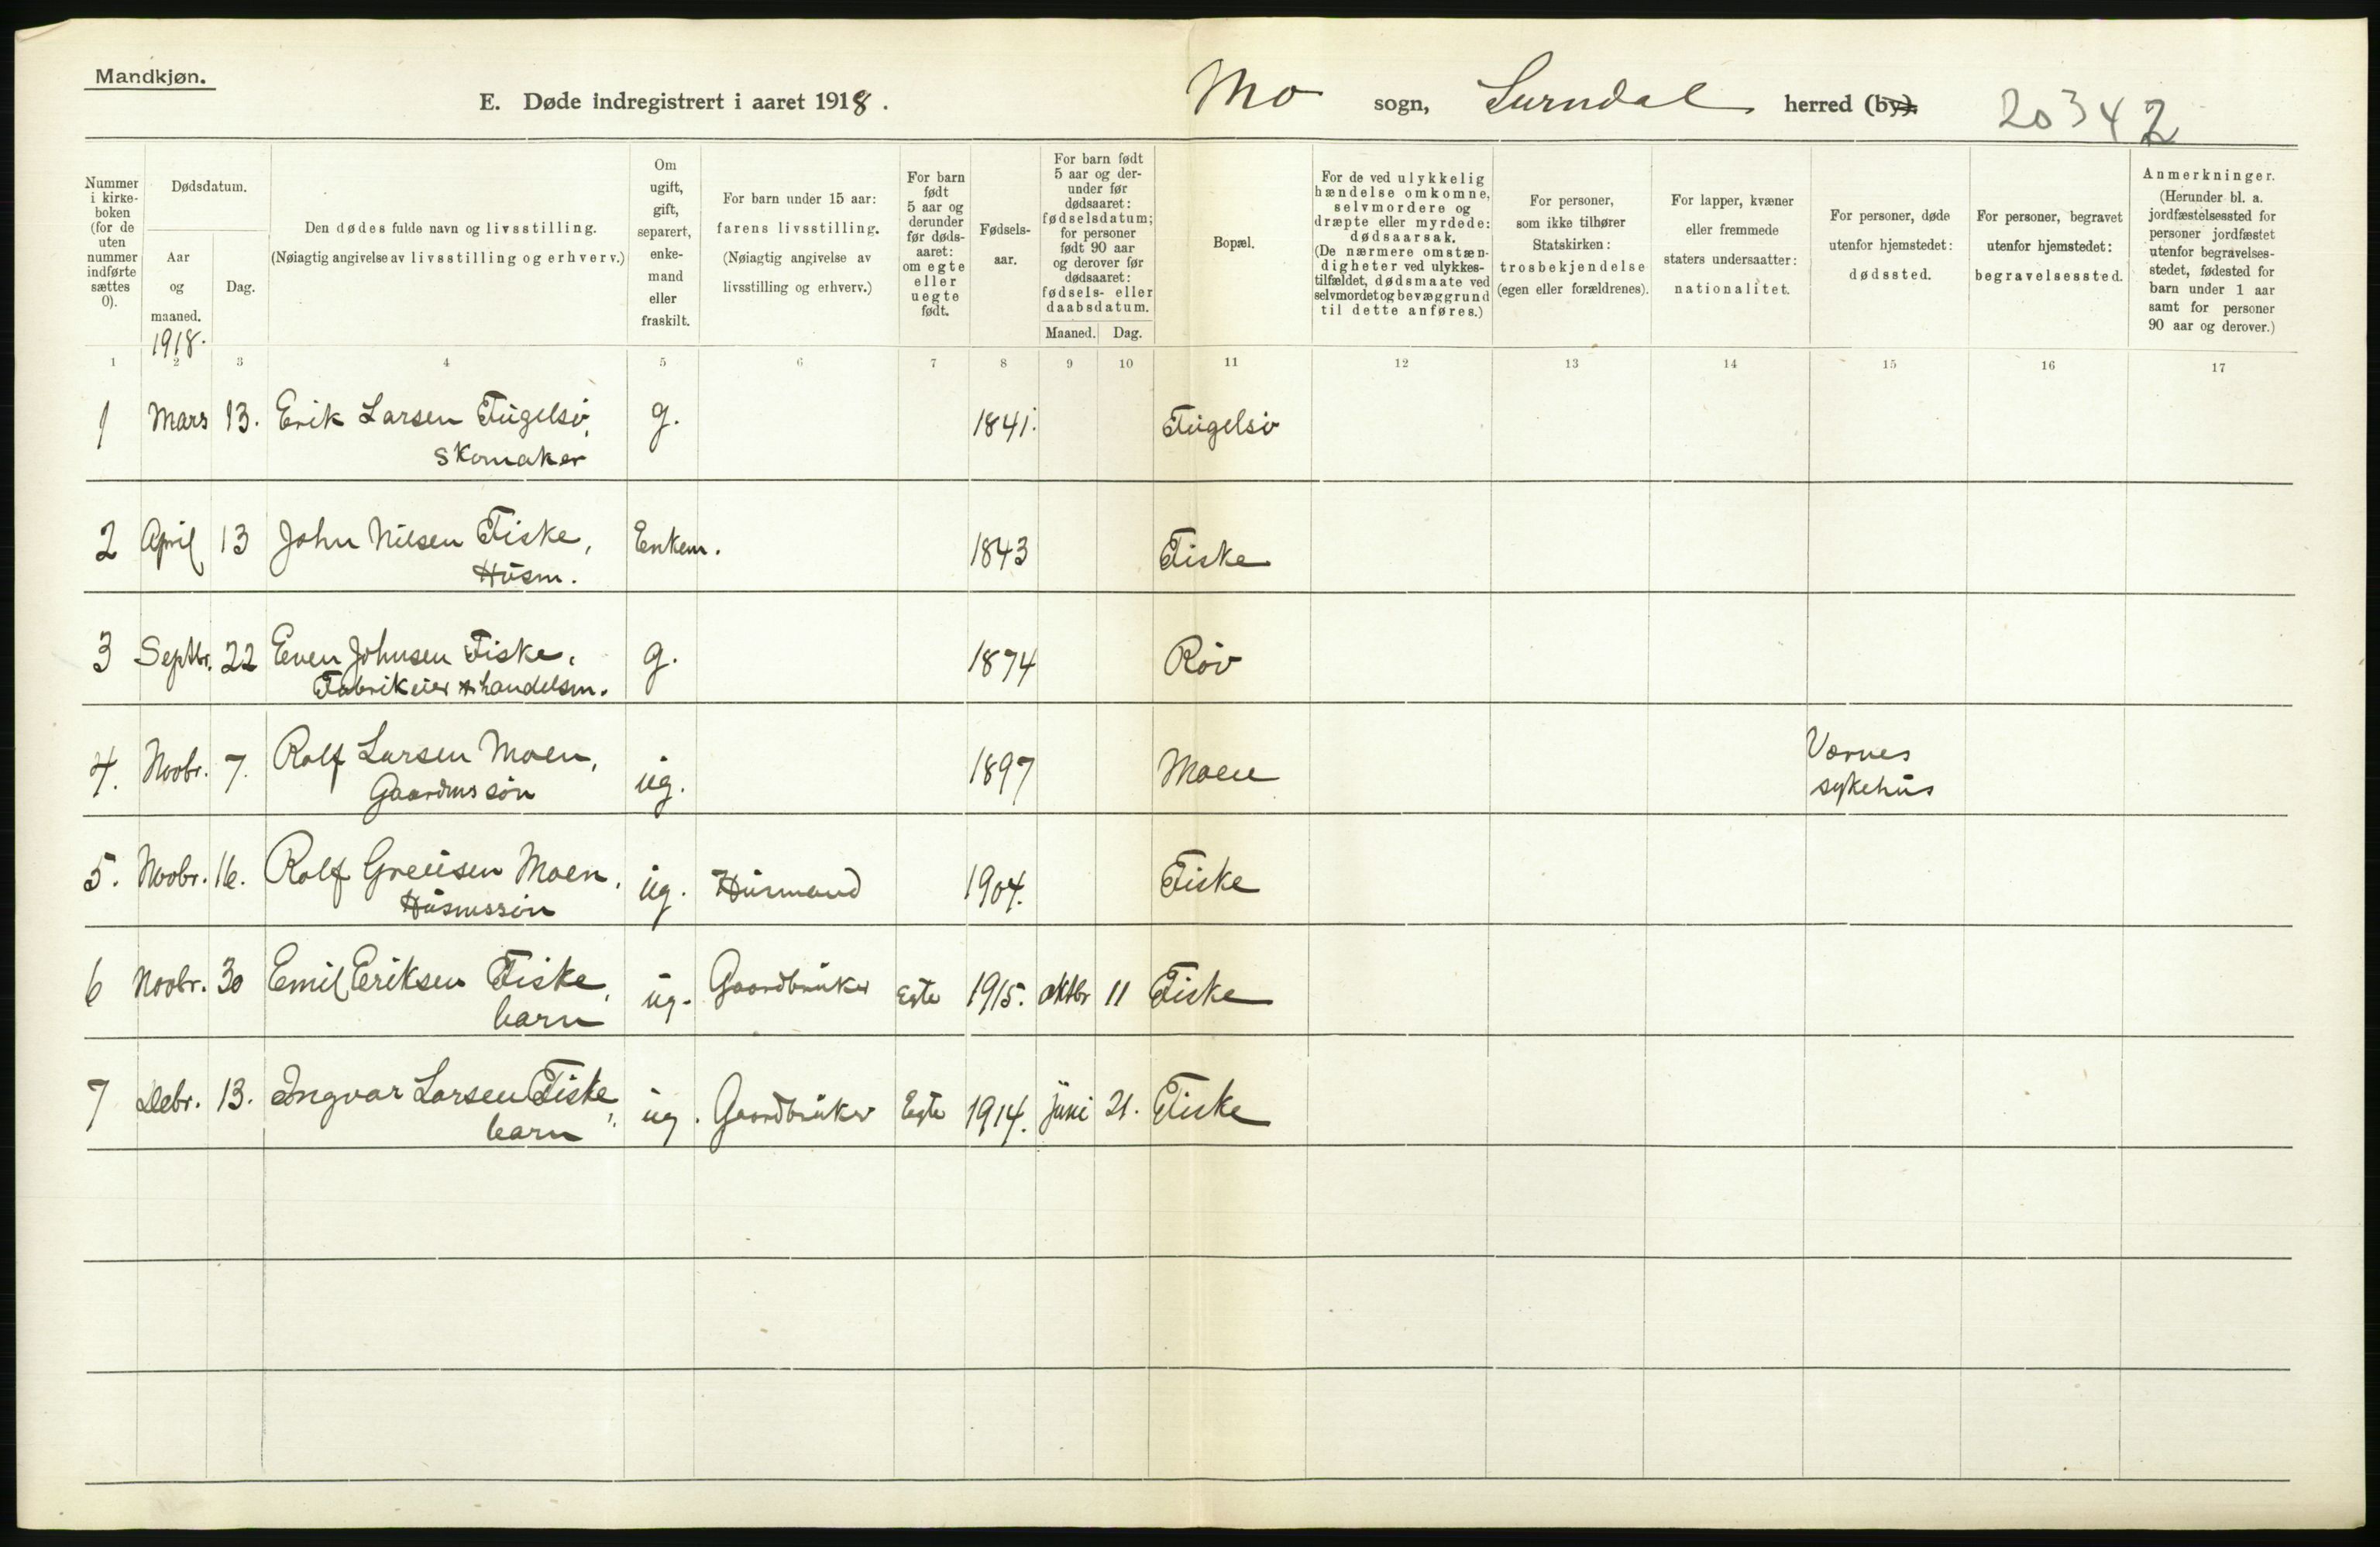 Mandkjøn.
E. Døde indregistrert i aaret 1918.
Mo sogn, Surndal herred (by).
20342
Nummer i kirke-boken (for de uten nummer indførte sættes 0).
Dødsdatum.
Aar og maaned.
1918.
Dag.
Den dødes fulde navn og livsstilling.
(Nøiagtig angivelse av livsstilling og erhverv.)
Om ugift, gift, separert, enke-mand eller fraskilt.
For barn under 15 aar: farens livsstilling.
(Nøiagtig angivelse av livsstilling og erhverv.)
For barn født 5 aar og derunder før døds-aaret: om egte eller uegte født.
Fødsels-aar.
For barn født 5 aar og der-under før dødsaaret: fødselsdatum; for personer født 90 aar og derover før dødsaaret: fødsels- eller daabsdatum.
Maaned. Dag.
Bopæl.
For de ved ulykkelig hændelse omkomne, selvmordere og dræpte eller myrdede: dødsaarsak.
(De nærmere omstæn-digheter ved ulykkes-tilfældet, dødsmaate ved selvmordet og bevæggrund til dette anføres.)
For personer, som ikke tilhører Statskirken: trosbekjendelse (egen eller forældrenes).
For lapper, kvæner eller fremmede staters undersaatter: nationalitet.
For personer, døde utenfor hjemstedet: dødssted.
For personer, begravet utenfor hjemstedet: begravelsessted.
Anmerkninger.
(Herunder bl. a. jordfæstelsessted for personer jordfæstet utenfor begravelses-stedet, fødested for barn under 1 aar samt for personer 90 aar og derover.)
1 2 3 4 5 6 7 8 9 10 11 12 13 14 15 16 17
1 Mars 13. Erik Larsen Fugelsø, g. 1841. Fugelsø
Skomaker
2 April 13 John Nilsen Fiske, Enkem. 1843 Fiske
Husm.
3 Septbr. 22 Even Johnsen Fiske, g. 1874 Røv
Fabrikeier & handelsm.
4. Novbr. 7. Rolf Larsen Moen, ug. 1897 Moen Værnes
Gaardmssøn sykehus
5. Novbr. 16. Rolf Greiisen Moen, ug. Husmand 1904. Fiske
Husmssøn
6 Novbr. 30 Emil Eriksen Fiske, ug. Gaardbruker Egte 1915. oktbr 11 Fiske
barn
7 Debr. 13. Ingvar Larsen Fiske, ug. Gaardbruker Egte 1914. juni 21. Fiske
barn